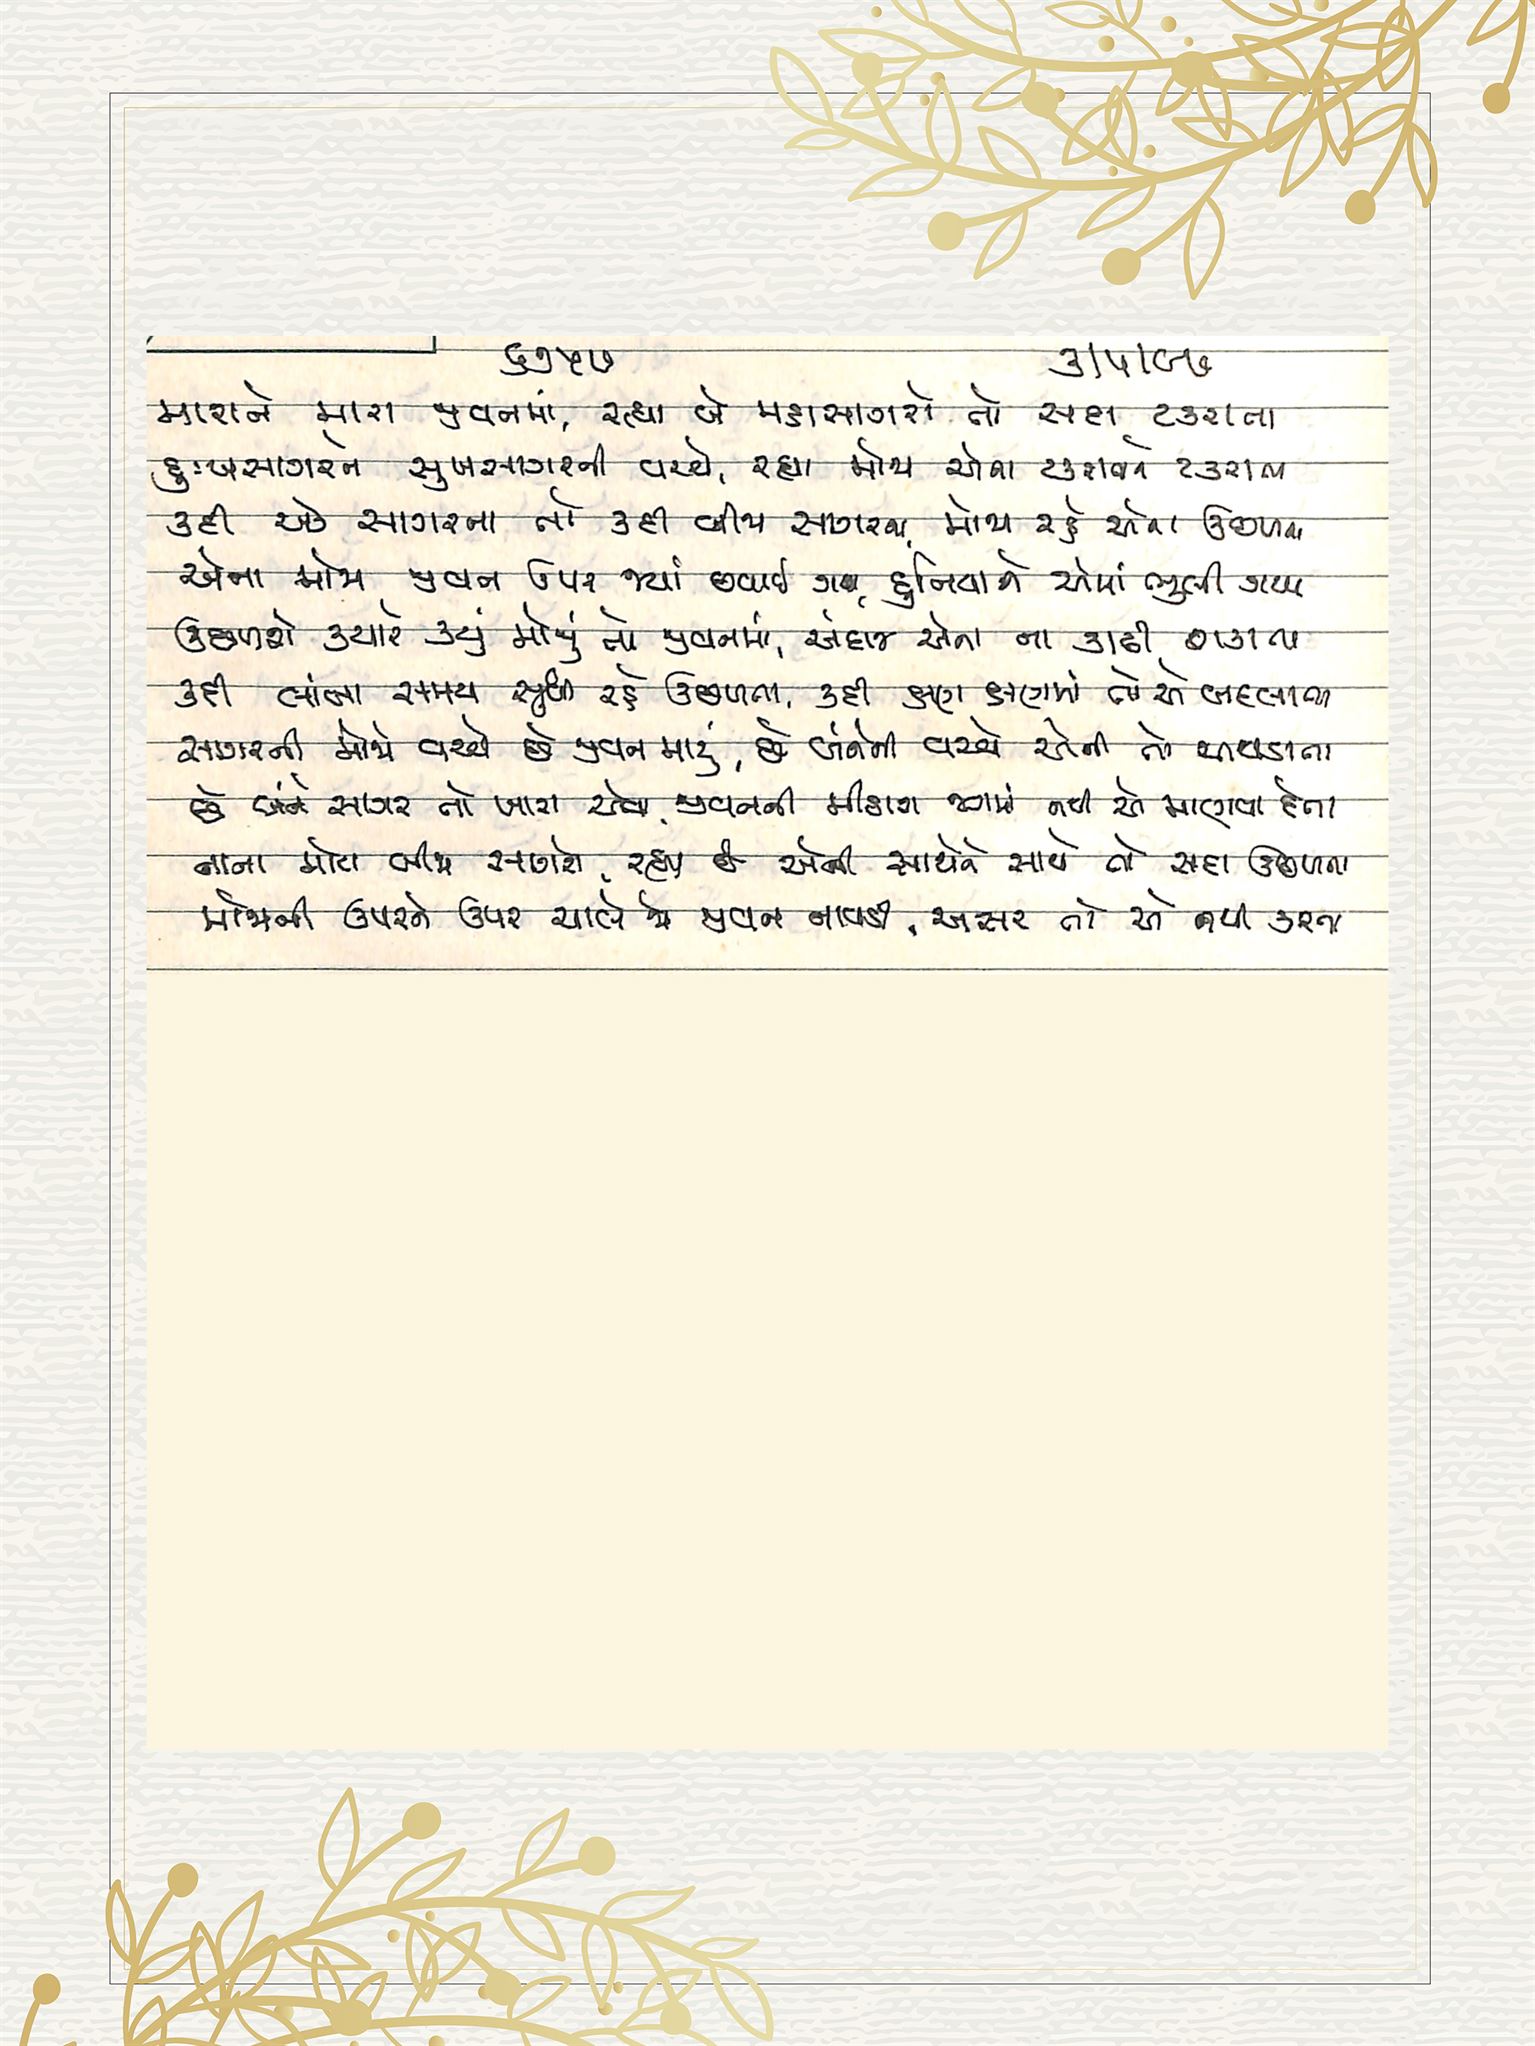 ૬૭૫૭ ૩/૫/૯૭
મારાને મારા જીવનમાં, રહ્યા બે મહાસાગરો તો સદા ટકરાતા
દુઃખસાગરને સુખસાગરની વચ્ચે, રહ્યા મોજા એના ટકરાવને ટકરાતા
કદી એક સાગરના તો કદી બીજા સાગરના, મોજા રહે એના ઉછળતા
એના મોજા જીવન ઉપર જ્યાં છવાઈ ગયા, દુનિયાને એમાં ભુલી ગયા
ઉછળશે ક્યારે ક્યું મોજું તો જીવનમાં, અંદાજ એના ના કાઢી શકાતા
કદી લાંબા સમય સુધી રહે ઉછળતા, કદી ક્ષણ ક્ષણમાં તો એ બદલાતા
સાગરની મોજે વચ્ચે છે જીવન મારું, છે બંનેની વચ્ચે એની તો
છે બંને સાગર તો ખારા એવા, જીવનની મીઠાશ જગમાં નથી એ માણવા દેતા
નાના મોટા બીજા સાગરો, રહ્યા છે એની સાથેને સાથે તો સદા ઉછળતા
મોજાની ઉપરને ઉપર ચાલે જે જીવન નાવડી, અસર તો એ નથી કરતા